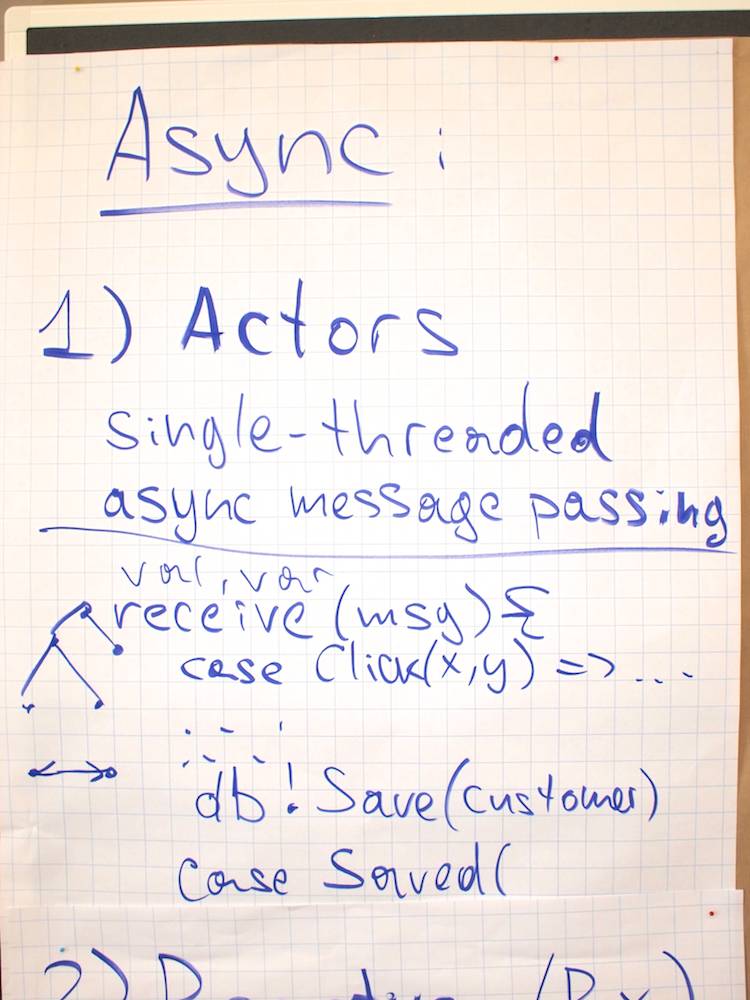 Async :
1) Actors
single-threaded
async message passing
var, var
receive (msg) {
case Click(x,y) => ...
db ! Save(customer)
case Saved(
2)